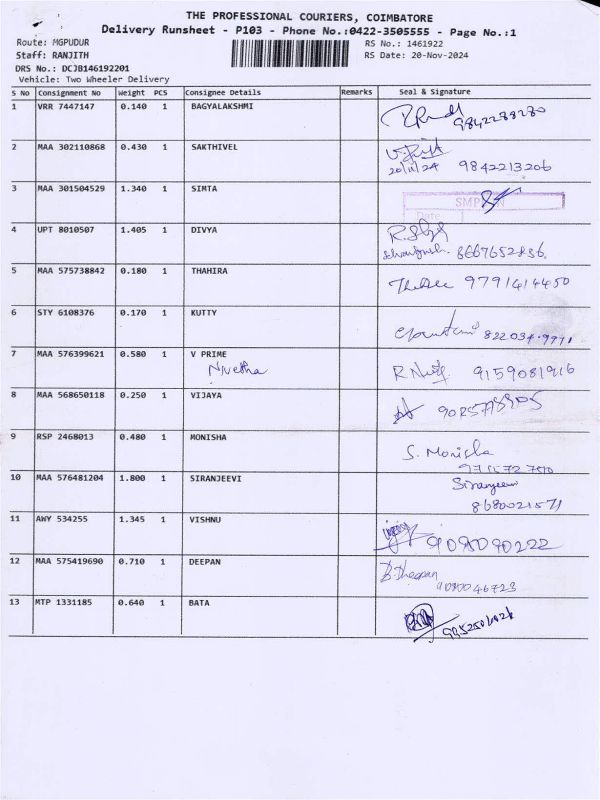 THE PROFESSIONAL COURIERS, COIMBATORE
Delivery Runsheet - P103 - Phone No.:0422-3505555 - Page No.:1
Route: MGPUDUR RS No.: 1461922
Staff: RANJITH RS Date: 20-Nov-2024
DRS No.: DCJB146192201
Vehicle: Two Wheeler Delivery
S No Consignment No Weight PCS Consignee Details Remarks Seal & Signature
1 VRR 7447147 0.140 1 BAGYALAKSHMI
9842288280
2 MAA 302110868 0.430 1 SAKTHIVEL
20/11/24 9842213206
3 MAA 301504529 1.340 1 SIMTA
Date
4 UPT 8010507 1.405 1 DIVYA
8667652836.
5 MAA 575738842 0.180 1 THAHIRA
9791414450
6 STY 6108376 0.170 1 KUTTY
7 MAA 576399621 0.580 1 V PRIME
Nivetha R 9159081916
8 MAA 568650118 0.250 1 VIJAYA
9 RSP 2468013 0.480 1 MONISHA
S. Monisha
10 MAA 576481204 1.800 1 SIRANJEEVI
Siranjeevi
8680021571
11 AWY 534255 1.345 1 VISHNU
9080090222
12 MAA 575419690 0.710 1 DEEPAN
B. Dheepan
9080046723
13 MTP 1331185 0.640 1 BATA